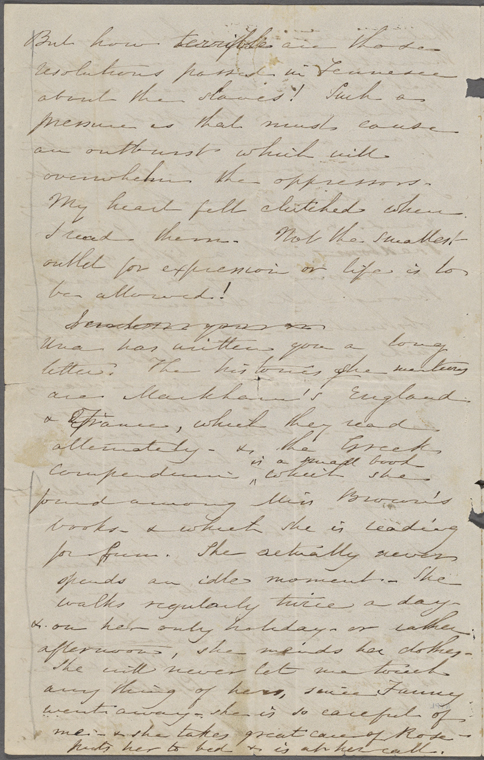 But how terrible are those
resolutions passed in Tennessee
about the slaves! Such a
pressure as that must cause
an outburst which will
overwhelm the oppressors.
My heart felt clutched when
I read them. Not the smallest
outlet for expression or life is to
be allowed!
Una has written you a long
letter. The histories she mentions
are Markham's England
& France, which they read
alternately - & the Greek
compendium is a small book which she
found among Miss Brown's
books - & which she is reading
for fun. She actually never
spends an idle moment. She
walks regularly twice a day
& on her only holiday - or rather
afternoon, she mends her clothes.
She will never let me touch
any thing of hers, since Fanny
went away - she is so careful of
me - & she takes great care of Rose -
puts her to bed & is at her call.